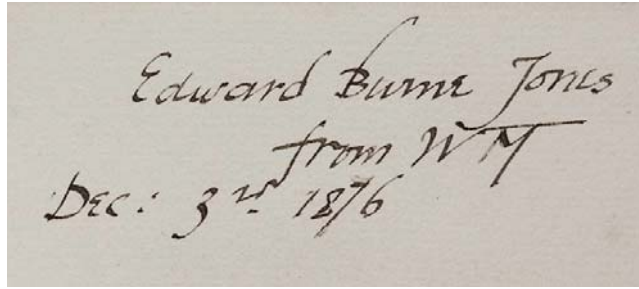 Edward Burne Jones
from WM
Dec: 3rd 1876